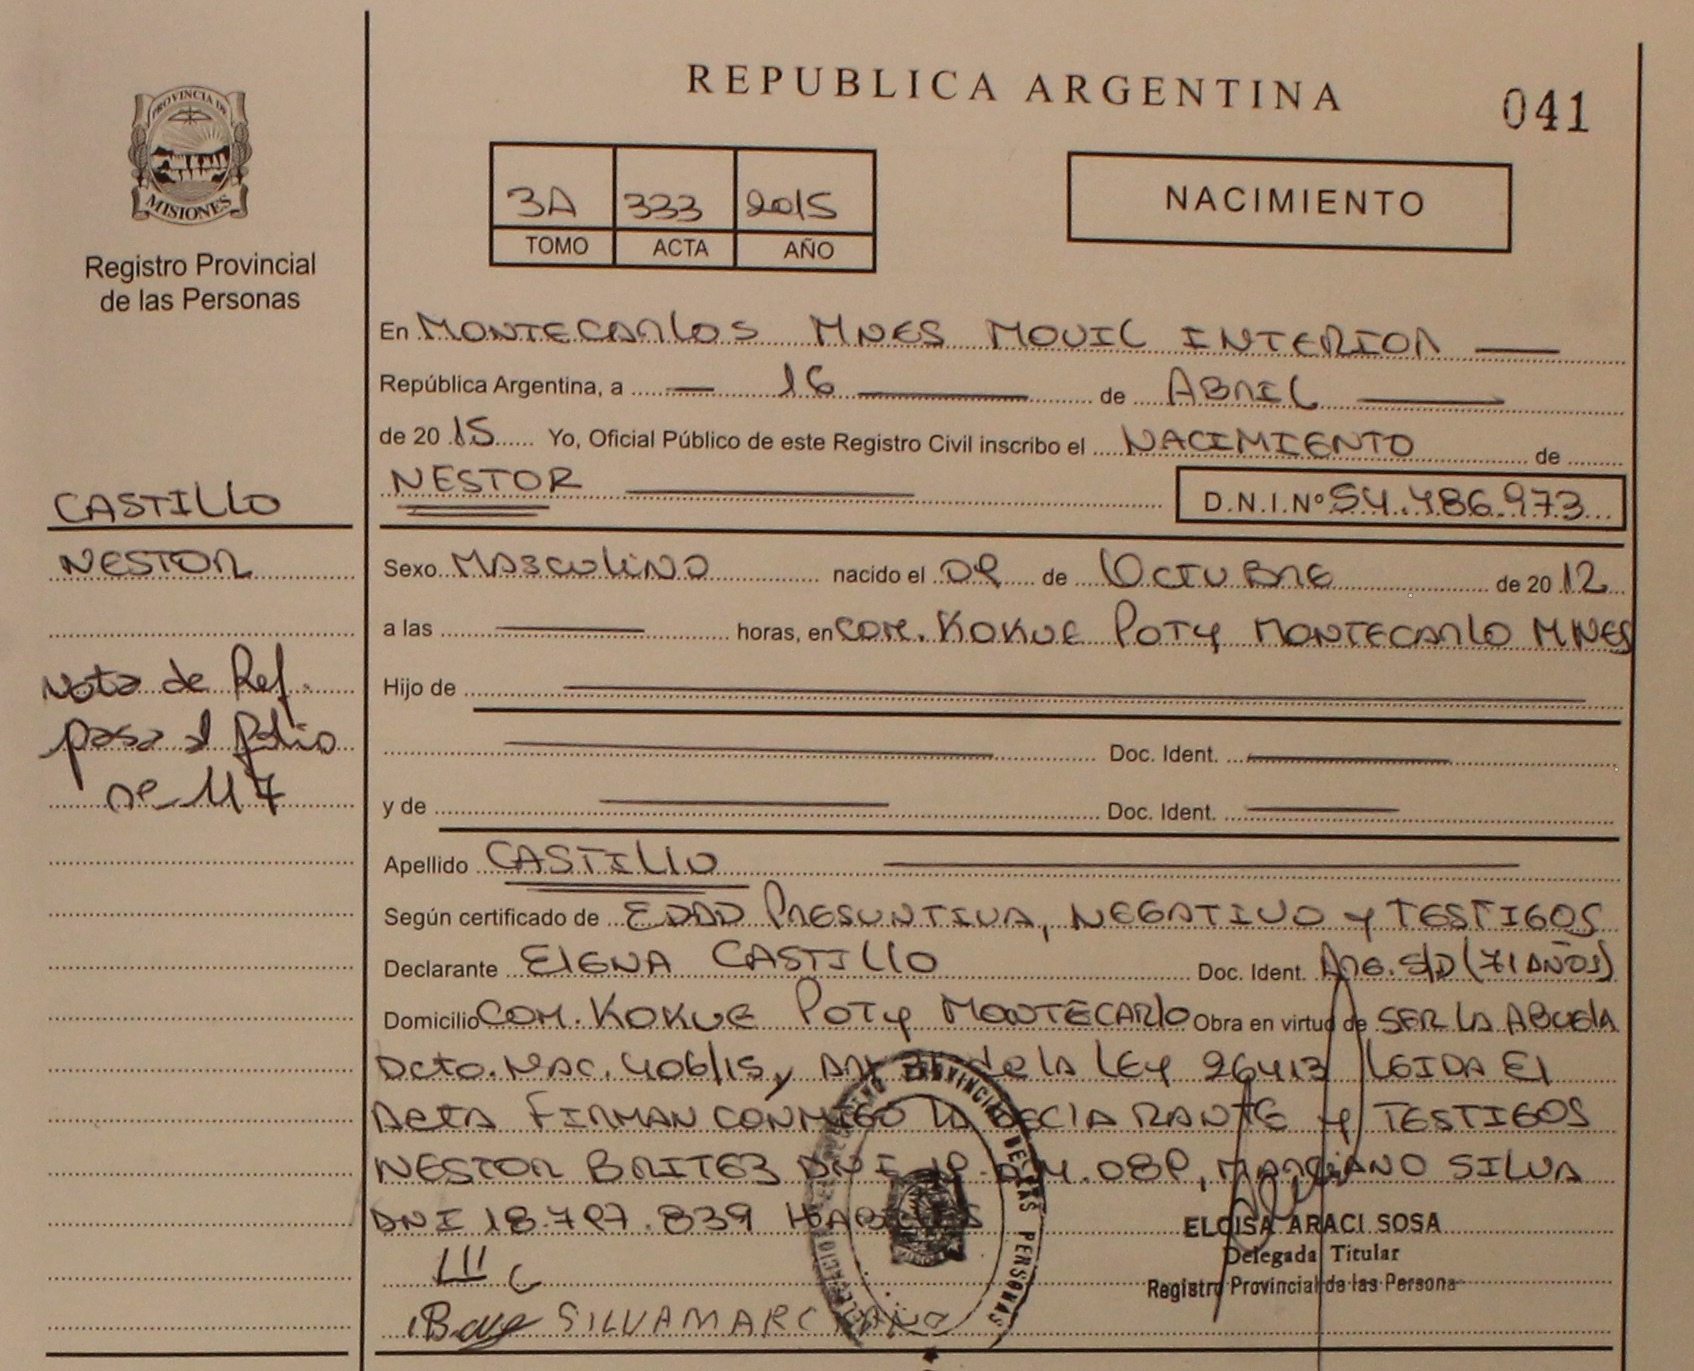 REPUBLICA ARGENTINA
041
PROVINCIA DE
MISIONES
Registro Provincial
de las Personas
3A 333 2015
TOMO ACTA AÑO
NACIMIENTO
En MONTECARLOS MNES MOVIL INTERIOR
República Argentina, a 16 de ABRIL
de 20 15 Yo, Oficial Público de este Registro Civil inscribo el NACIMIENTO de
NESTOR D.N.I.Nº 54.486.973
CASTILLO
NESTOR
Nota de Ref.
pasa al folio
nº 117
Sexo MASCULINO nacido el 09 de OCTUBRE de 20 12
a las horas, en COM. KOKUE POTY MONTECARLO MNES
Hijo de
Doc. Ident.
y de Doc. Ident.
Apellido CASTILLO
Según certificado de EDAD PRESUNTIVA, NEGATIVO y TESTIGOS
Declarante ELENA CASTILLO Doc. Ident. ARG. S/D (71 AÑOS)
Domicilio COM. KOKUE POTY MONTECARLO Obra en virtud de SER LA ABUELA
Dcto. NAC. 406/15, y de la LEY 26413 LEIDA EL
ACTA FIRMAN CONMIGO LA DECLARANTE y TESTIGOS
NESTOR BRITEZ DNI .089, MARCIANO SILVA
DNI 18.797.839 HABILES
SILVA MARCIANO
PROVINCIAL DE LAS PERSONAS
ELOISA ARACI SOSA
Delegada Titular
Registro Provincial de las Persona